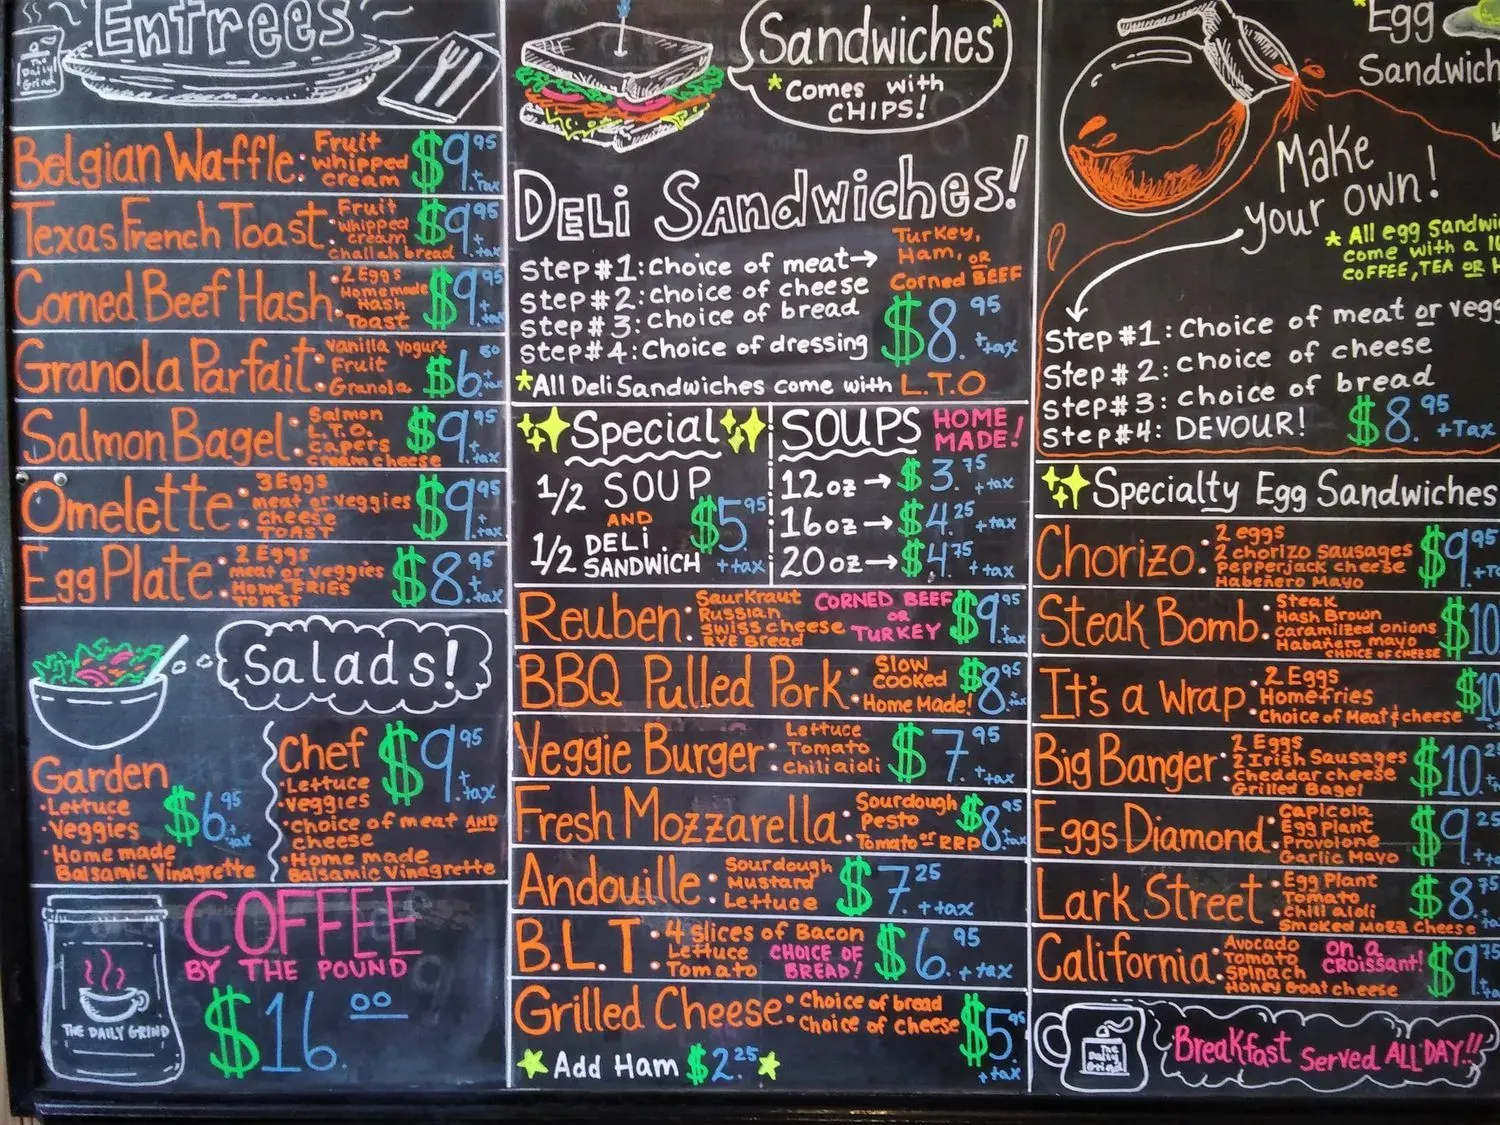 Entrees
The
Daily
Grind
Belgian Waffle: Fruit
whipped
cream
$9.95
+tax
Texas French Toast: Fruit
whipped
cream
challah bread
$9.95
+tax
Corned Beef Hash: 2 Eggs
Homemade
Hash
Toast
$9.95
+tax
Granola Parfait: vanilla yogurt
Fruit
Granola
$6.50
+tax
Salmon Bagel: Salmon
L.T.O.
Capers
cream cheese
$9.95
+tax
Omelette: 3 Eggs
meat or veggies
cheese
TOAST
$9.95
+tax
Egg Plate: 2 Eggs
meat or veggies
Home FRIES
TOAST
$8.95
+tax
Salads!
Garden
•Lettuce
•Veggies
•Home made
Balsamic Vinagrette
$6.95
+tax
Chef
•Lettuce
•veggies
•choice of meat AND
cheese
•Home made
Balsamic Vinagrette
$9.95
+tax
COFFEE
BY THE POUND
$16.00
THE DAILY GRIND
Sandwiches*
*Comes with
CHIPS!
DELi SANdwicHes!
Step #1: Choice of meat→
Turkey,
Ham, OR
Corned BEEF
Step #2: Choice of cheese
Step #3: Choice of bread
Step #4: Choice of dressing
$8.95
+tax
*All Deli Sandwiches come with L.T.O
Special
1/2 SOUP
AND
1/2 DELi
SANDWICH
$5.95
+tax
SOUPS HOME
MADE!
12oz→$3.75 +tax
16oz→$4.25 +tax
20oz→$4.75 +tax
Reuben: SaurKraut
Russian
Swiss cheese
RYE Bread
CORNED BEEF
OR
TURKEY
$9.95
+tax
BBQ Pulled Pork: Slow
cooked
•Home Made!
$8.95
+tax
Veggie Burger: Lettuce
•Tomato
•chili aioli
$7.95
+tax
Fresh Mozzarella: Sourdough
Pesto
Tomato or RRP
$8.95
+tax
Andouille: Sourdough
Mustard
Lettuce
$7.25
+tax
B.L.T: 4 slices of Bacon
•Lettuce
•Tomato
CHOICE OF
BREAD!
$6.95
+tax
Grilled Cheese: Choice of bread
•Choice of cheese
$5.95
+tax
*Add Ham $2.25*
*Egg
Sandwich
Make
your own!
* All egg Sandwi
come with a
COFFEE, TEA OR H
Step #1: Choice of meat or vegg
Step #2: choice of cheese
Step #3: choice of bread
Step #4: DEVOUR!
$8.95
+Tax
Specialty Egg Sandwiches
Chorizo: 2 eggs
2 chorizo sausages
Pepperjack cheese
Habeñero Mayo
$9.95
+T
Steak Bomb: Steak
Hash Brown
caramilzed onions
Habañero mayo
CHOICE OF CHEESE
$10
It's a wrap: 2 Eggs
Homefries
•Choice of Meat & cheese
$10
Big Banger: 2 Eggs
2 Irish Sausages
cheddar cheese
Grilled Bagel
$10.2
+t
Eggs Diamond: Capicola
Egg Plant
Provolone
Garlic Mayo
$9.25
+t
Lark Street: Egg Plant
Tomato
Chili aioli
Smoked Mozz Cheese
$8.75
+ta
California: Avocado
Tomato
Spinach
Honey Goat cheese
on a
croissant!
$9.75
+ta
The
Daily
Grind
Breakfast Served ALL DAY!!